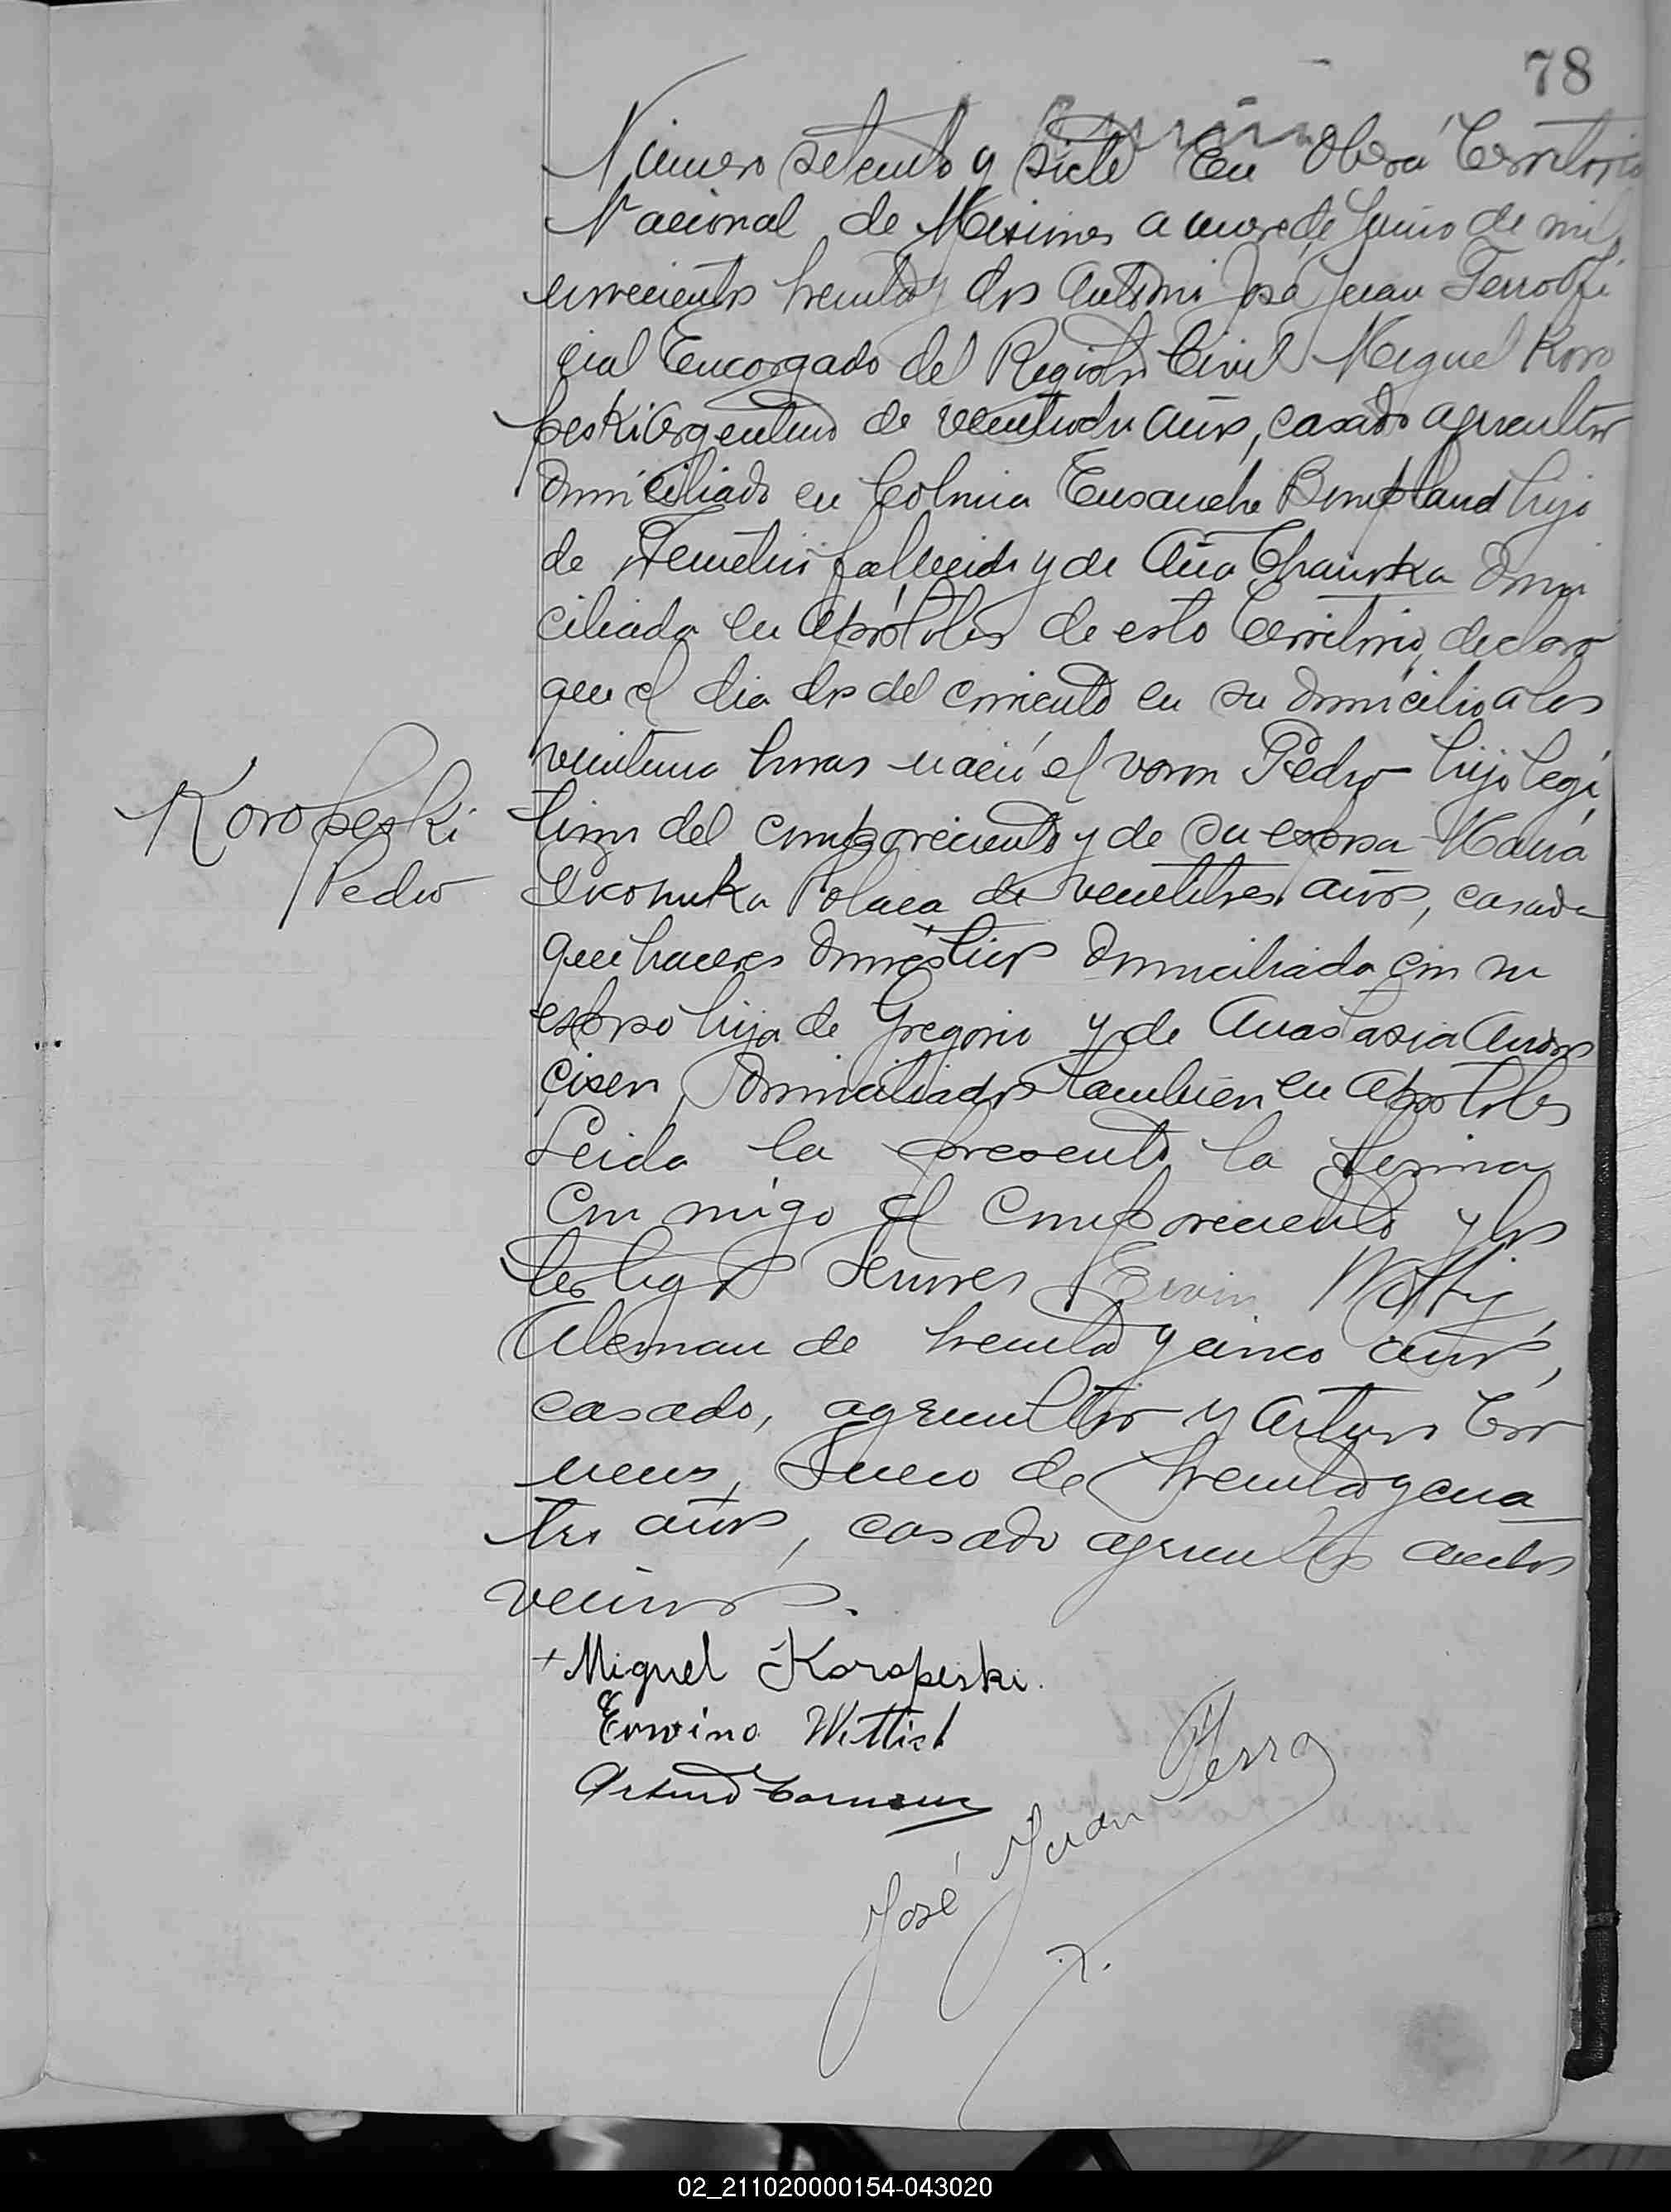 78
Número setenta y siete En Oberá Territorio
Nacional de Misiones a nueve de Junio de mil
novecientos treinta y dos Ante mi José Juan Ferro Ofi
cial Encargado del Registro Civil Miguel Koro
peski Argentino de años, casado agricultor
domiciliado en Colonia Ensanche Bompland hijo
de fallecido y de Ana domi
ciliada en Apóstoles de este Territorio, declaro
que el dia dos del corriente en su domicilio a las
veintiuna horas nació el varon Pedro hijo legi
Koropeski
timo del compareciente y de su esposa Maria
Pedro
Polaca de veintitres años, casada
quehaceres domésticos domiciliada con su
esposo hija de Gregorio y de Anastasia
domiciliados tambien en Apostoles
Leida la presente la firma
con migo el compareciente y los
testigos Señores Ervin
Aleman de treinta y cinco años,
casado, agricultor y Arturo Cor
neus, Sueco de treinta y cua
tro años, casado agricultor ambos
vecinos.
+ Miguel Koropeski.
Erwino Wittich
Arturo Corneus
José Juan Ferro
02_211020000154-043020